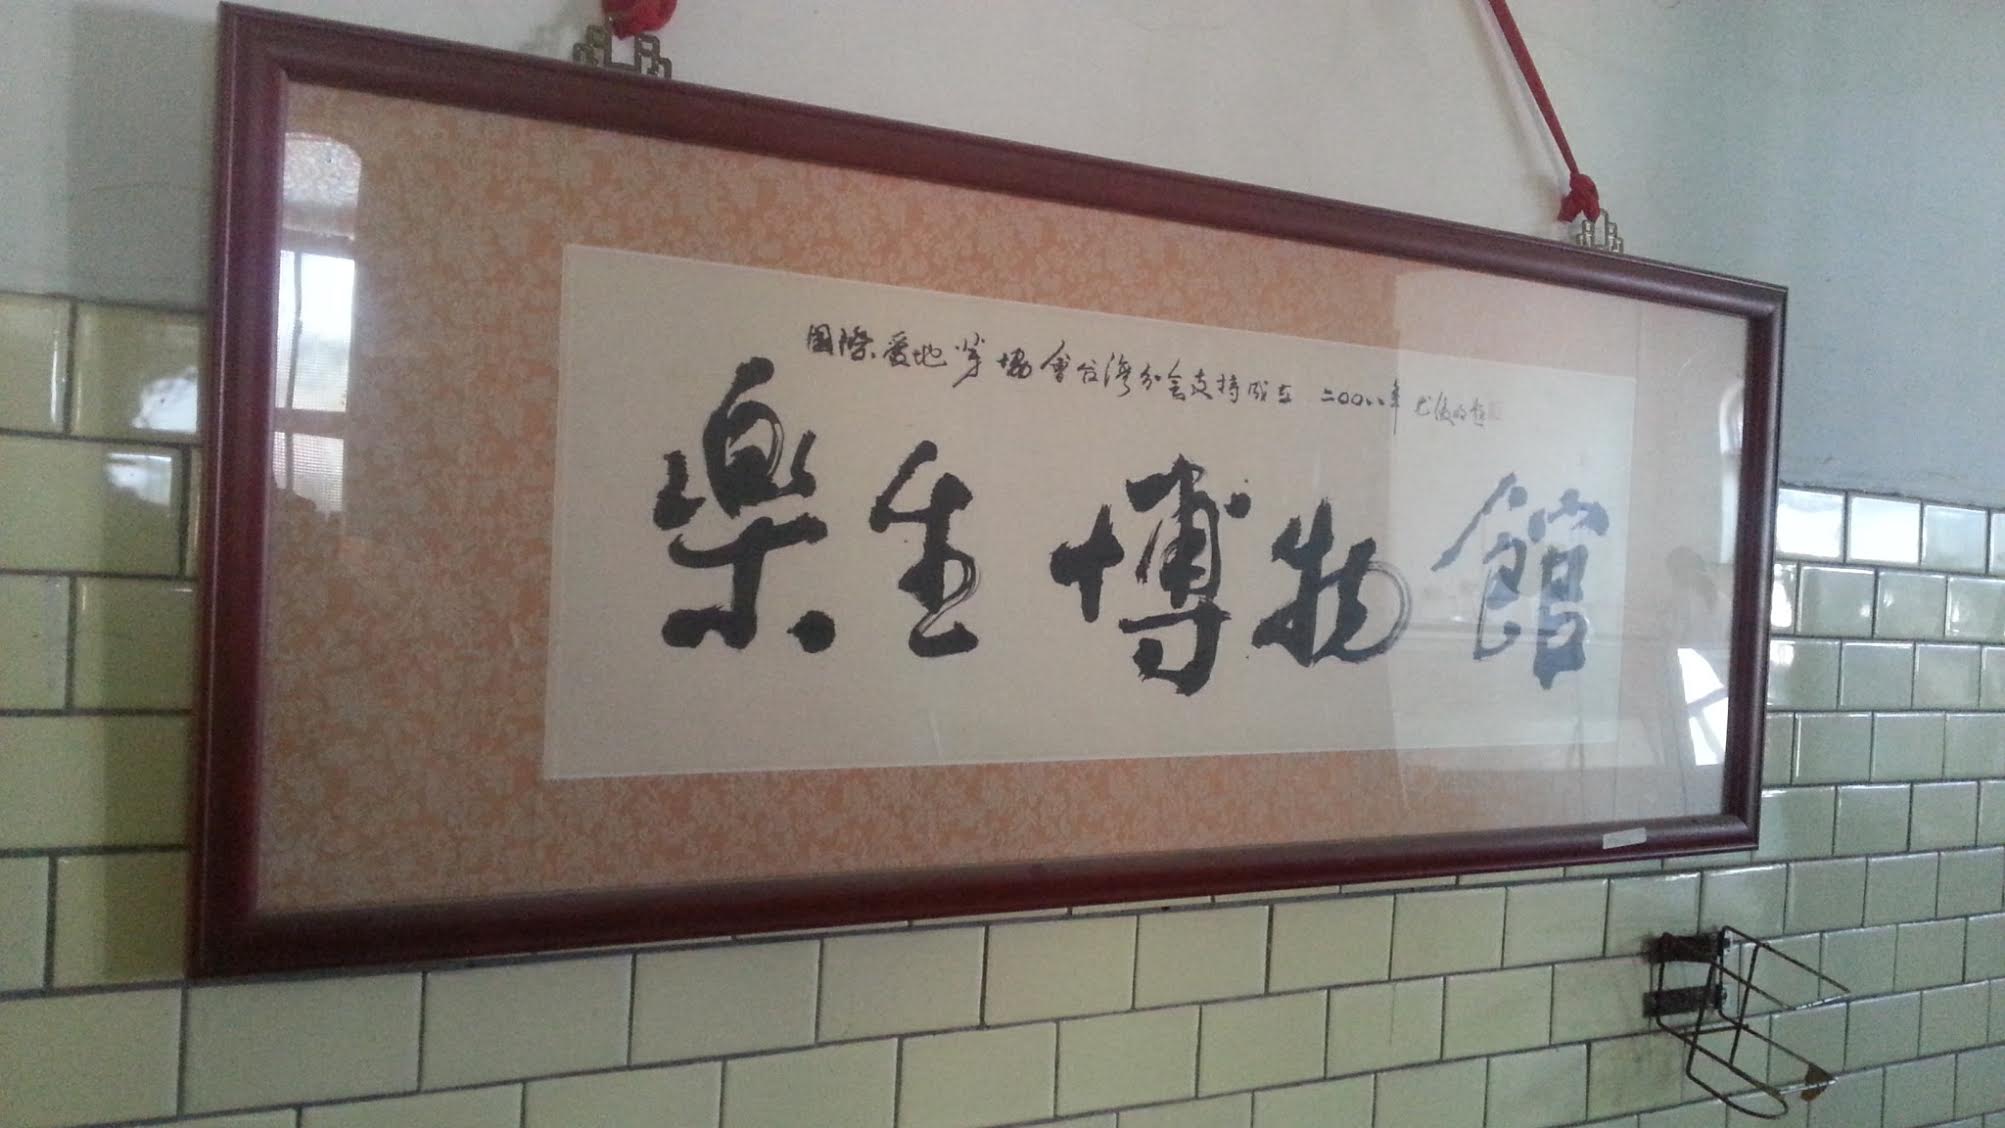 國際愛地芽協會台灣分會支持成立 二〇〇八年
樂生博物館